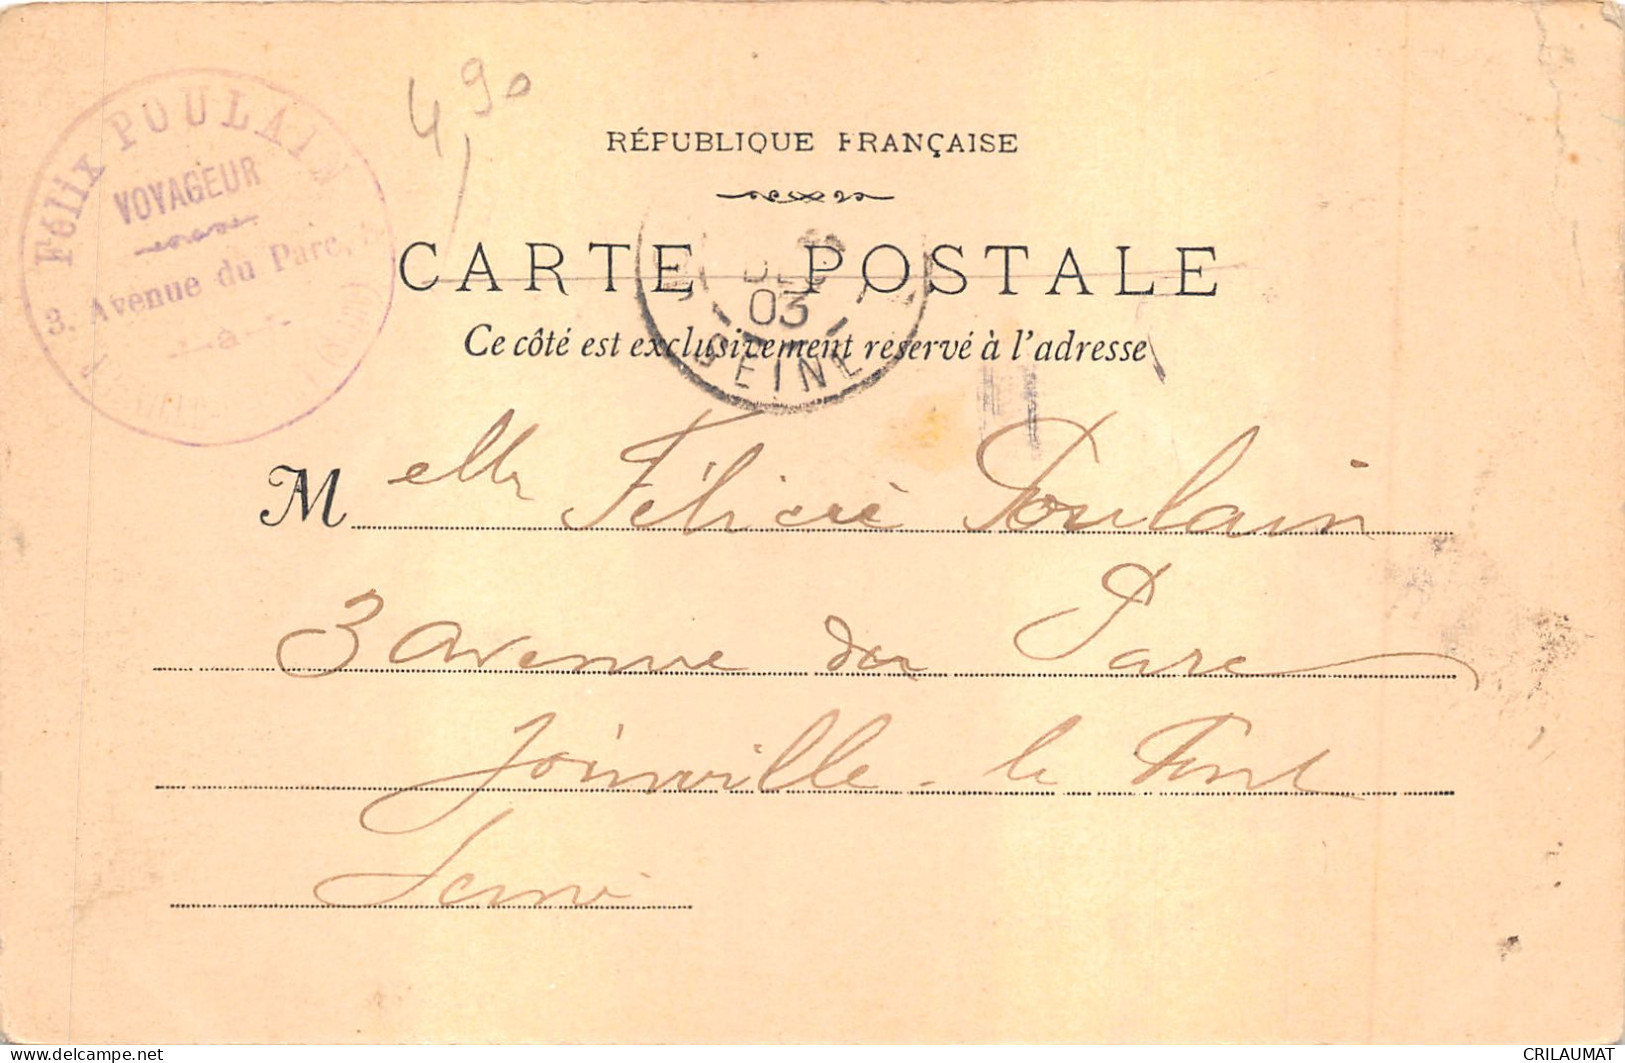 Félix POULAIN
VOYAGEUR
3, Avenue du Parc, 3
à
4,90
RÉPUBLIQUE FRANÇAISE
CARTE POSTALE
DEC
03
SEINE
Ce côté est exclusivement réservé à l'adresse
Melle Félicie Poulain
3 Avenue du Parc
Joinville-le Pont
Seine
www.delcampe.net
CRILAUMAT